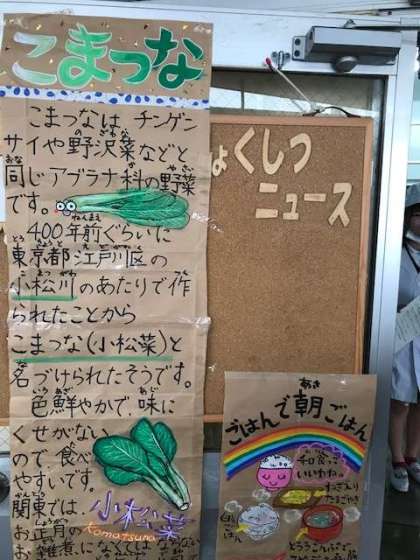 こまつな
こまつなは チンゲン
サイや野沢菜などと
同じアブラナ科の野菜
です。
400年前ぐらいに
東京都江戸川区の
小松川のあたりで作
られたことから
こまつな(小松菜)と
名づけられたそうです。
色鮮やかで、味に
くせがない
ので食べ
やすいです。
関東では、
お正月の
お雑煮に
小松菜
Komatsuna
くしつ
ニュース
ごはんで朝ごはん
和食って
いいわね
たまごやき